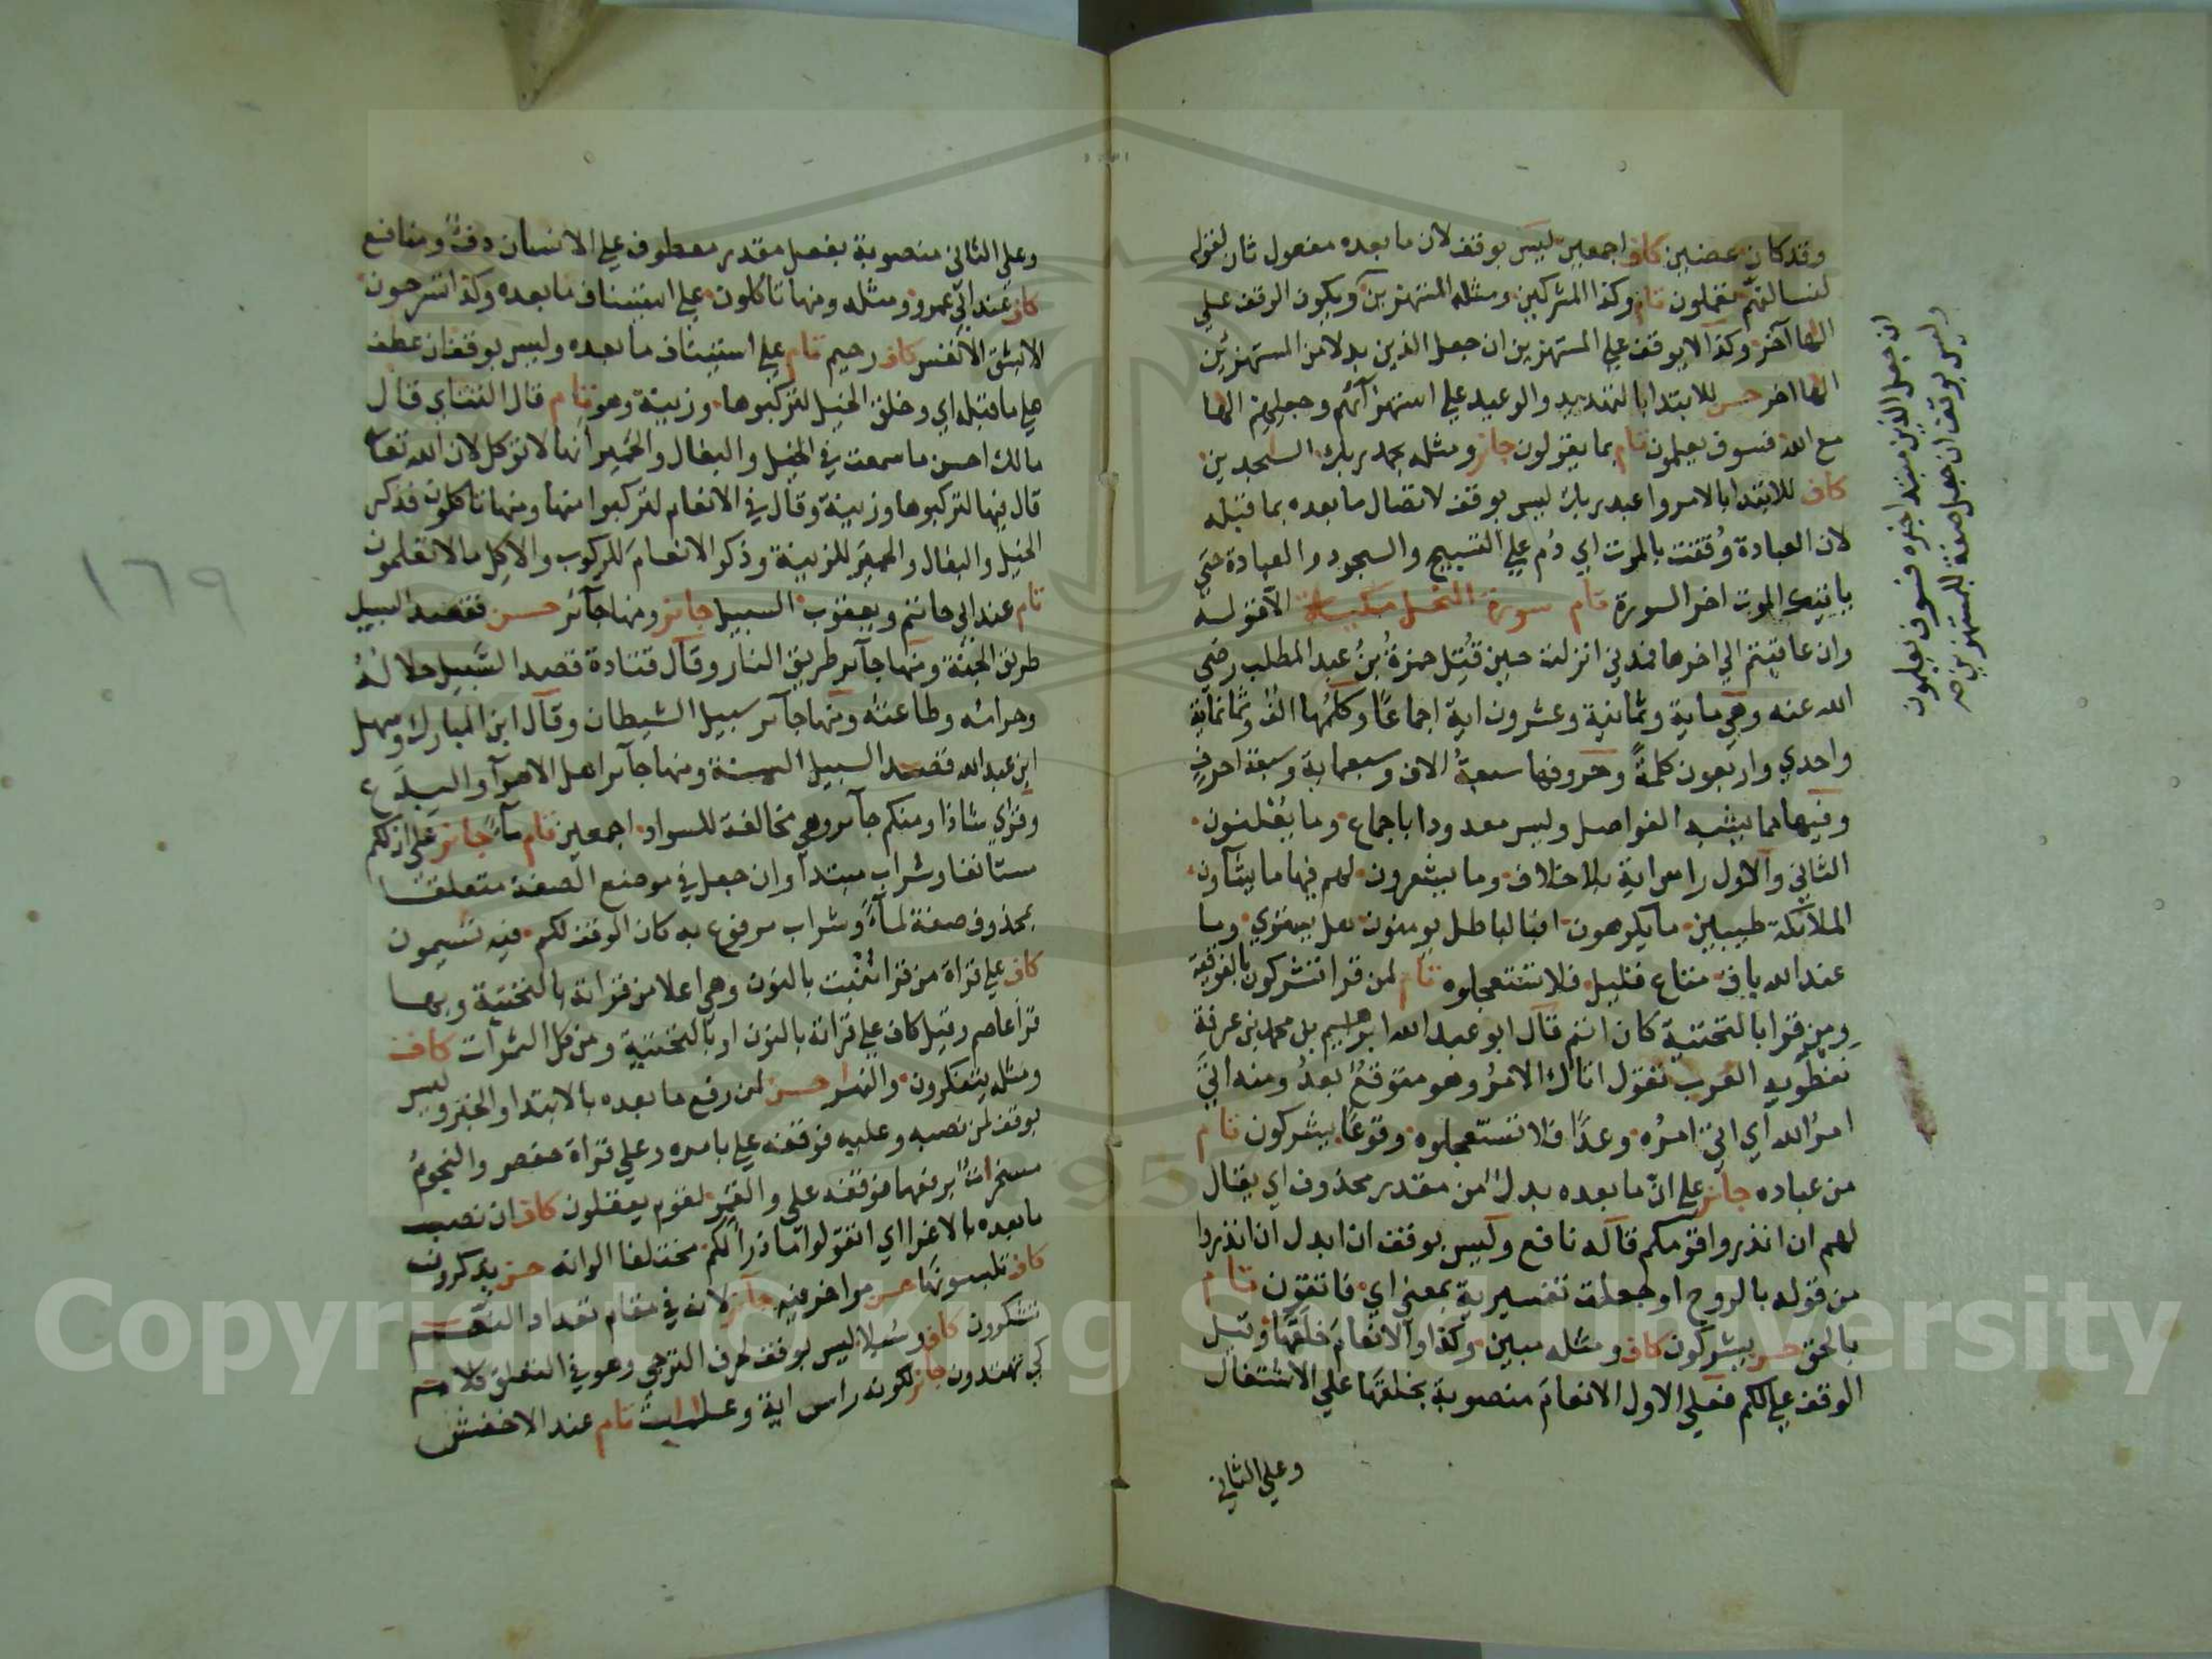 وقد كان عضين كاف اجمعين ليس بوقف لان ما بعده مفعول ثان لقوله
لنسالنهم يعملون تام وكذا المشركين ومثله المستهزين ويكون الوقف على
الها آخر وكذا لا يوقف على المستهزين ان جعل الذين بدلا من المستهزئين
الها اخر حسن للابتدا بالتهديد والوعيد على استهزآئهم وجعلهم الها
مع الله فسوف يعلمون تام بما يقولون جائز ومثله بحمد ربك الساجدين
كاف للابتدا بالامر واعبد ربك ليس بوقف لاتصال ما بعده بما قبله
لان العبادة وُقتت بالموت اي دُم على التسبيح والسجود والعبادة حتى
ياتيك الموت اخر السورة تام سورة النحل مكية الا قوله
وان عاقبتم الى اخرها فمدني انزلت حين قُتِل حمزةُ بنُ عبد المطلب رضي
الله عنه وهي ماية وثمانية وعشرون اية اجماعًا وكلمُها الف وثمانماية
واحدي واربعون كلمةً وحروفها سبعةُ الاف وسبعماية وسبعة احرف
وفيها مما يشبه الفواصل وليس معدودا باجماع وما يعلنون
الثاني والاول راس اية بلا خلاف وما يشعرون لهم فيها ما يشآون
الملائكة طيبين ما يكرهون افبالباطل يومنون هل يستوي وما
عند الله باق متاع قليل فلا تستعجلوه تام لمن قرا تشركون بالفوقية
ومن قرا بالتحتية كان اتم قال ابو عبد الله ابراهيم بن محمد بن عرفة
نفطويه العرب تقول اتاك الامرُ وهو متوقعٌ بعدُ ومنه اتى
امرُ الله اي اتى امرُه وعدًا فلا تستعجلوه وقوعًا يشركون تام
من عباده جائز على انّ ما بعده بدل من مقدر محذوف اي يقال
لهم ان انذروا قومكم قاله نافع وليس بوقف ان ابدل ان انذروا
من قوله بالروح او جعلت تفسيرية بمعنى اي فاتقون تام
بالحق حسن يشركون كاف ومثله مبين وكذا والانعام خلقها وقيل
الوقف على لكم فعلى الاول الانعام منصوبة بخلقها على الاشتغال
وعلى الثاني
وليس بوقف ان جعل صفة للمستهزئين صح
ان جعل الذين مبتدا خبره فسوف يعلمون
وعلى الثاني منصوبة بفعل مقدر معطوف على الانسان دفءٌ ومنافع
كاف عند ابي عمرو ومثله ومنها تاكلون على استيناف ما بعده وكذا تسرحون
الا بشق الانفس كاف رحيم تام على استيناف ما بعده وليس بوقف ان عطف
على ما قبله اي وخلق الخيل لتركبوها وزينة وهو تام قال التتاي قال
مالك احسن ما سمعت في الخيل والبغال والحمير انها لا توكل لان الله تعا
قال فيها لتركبوها وزينة وقال في الانعام لتركبوا منها ومنها تاكلون فذكر
الخيل والبغال والحمير للزينة وذكر الانعام للركوب والاكل ما لا تعلمون
تام عند ابي حاتم ويعقوب السبيل جائز ومنها جآئر حسن فقصد السبيل
طريق الجنة ومنها جآئر طريق النار وقال قتادة قصد السَّبيل حلالُهُ
وحرامُه وطاعتُه ومنها جآئر سبيل الشيطان وقال ابن المبارك وسهل
ابن عبد الله قصد السبيل السنة ومنها جآئر اهل الاهوآ والبدع
وقرئ شاذا ومنكم جآئر وهي مخالفة للسواد اجمعين تام مآءً جائز على ان لكم
مستانفا وشراب مبتدا وان جعل في موضع الصفة متعلقا
بمحذوف صفة لمآء وشراب مرفوع به كان الوقف لكم فيه تسيمون
كاف على قراة من قرا ننبت بالنون وهي اعلا من قراته بالتحتية وبها
قرا عاصم وقيل كاف على قراته بالنون او بالتحتية ومن كل الثمرات كاف
ومثله يتفكرون والنهار حسن لمن رفع ما بعده بالابتدا والخبر وليس
بوقف لمن نصبه وعليه فوقفه على بامره وعلى قراة حفص والنجومُ
مسخراتٌ برفعها فوقفه على والقمر لقوم يعقلون كاف ان نصب
ما بعده بالاغرا اي اتقوا وما ذرا لكم مختلفا الوانه حسن يذكرون
كاف تلبسونها حسن مواخر فيه جائز لانه في مقام تعداد النعم
تشكرون كاف وسُبلا ليس بوقف لحرف الترجي وهو في التعلق كلام
كي تهتدون جائز لكونه راس اية وعلامات تام عند الاخفش
١٦٩
Copyright © King Saud University
1957